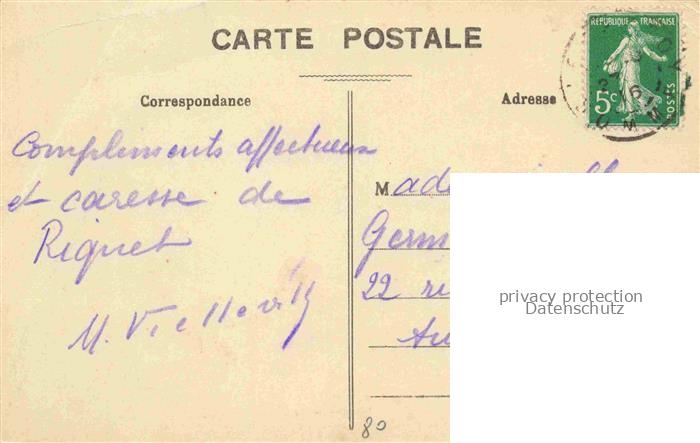 CARTE POSTALE
RÉPUBLIQUE FRANÇAISE
5c
POSTES
Correspondance
Adresse
Compliments affectueux
et caresse de
Riquet
M. Viellevill
Made
Germ
22 ru
Au
privacy protection
Datenschutz
80